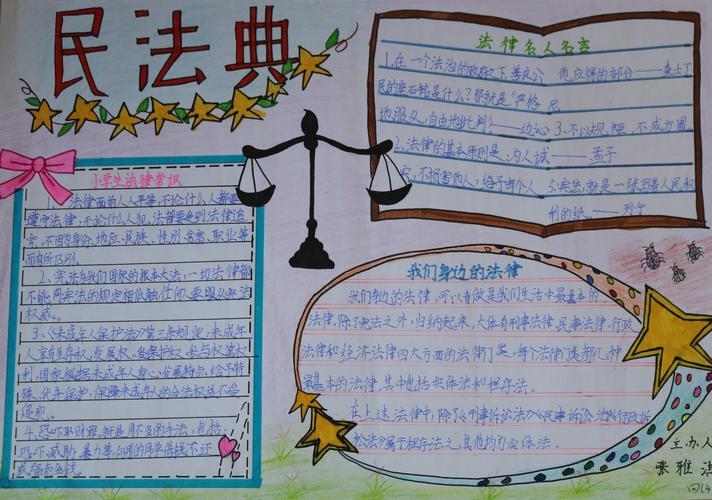 民法典
小学生法律常识
1、法律面前人人平等,不论什么人都要
遵守法律,不论什么人犯法都要受到法律追
究,不因身份、地位、民族、性别、贫富、职业等
而有所区别。
2、宪法为我们国家的根本大法,一切法律都
不能同宪法的规定相抵触任何人要服从宪法
权威。
3、《未成年人保护法》第三条规定,未成年
人享有生存权、发展权、受保护权、参与权等权
利,国家根据未成年人身心发展特点给予特
殊、优先保护,保障未成年人的合法权益不受
侵犯。
4、恐吓取财罪,就是用不当的手法,包括:
恐吓、威胁、暴力等,向别的同学借钱不还
或
法律名人名言
1.在一个法治的政府之下,善良公
民的座右铭是什么?那就是“严格
地服从,自由地批判”——边沁
2、法律的基本原则是:为人诚
实,不损害他人,给予每个人
他应得的部分——查士丁
尼
3、不以规矩,不成方圆。
——孟子
5、宪法,就是一张写着人民权
利的纸。——列宁
我们身边的法律
我们身边的法律,可以看做是我们生活中最基本的
法律,除了宪法之外,归纳起来,大体有刑事法律、民事法律、行政
法律和经济法律四大方面的法律门类,每个法律门类都几种
最基本的法律,其中包括实体法和程序法。
在上述法律中,除了《刑事诉讼法》《民事诉讼法》《行政诉
讼法》属于程序法之,其他均为实体法。
主办人
张雅淇